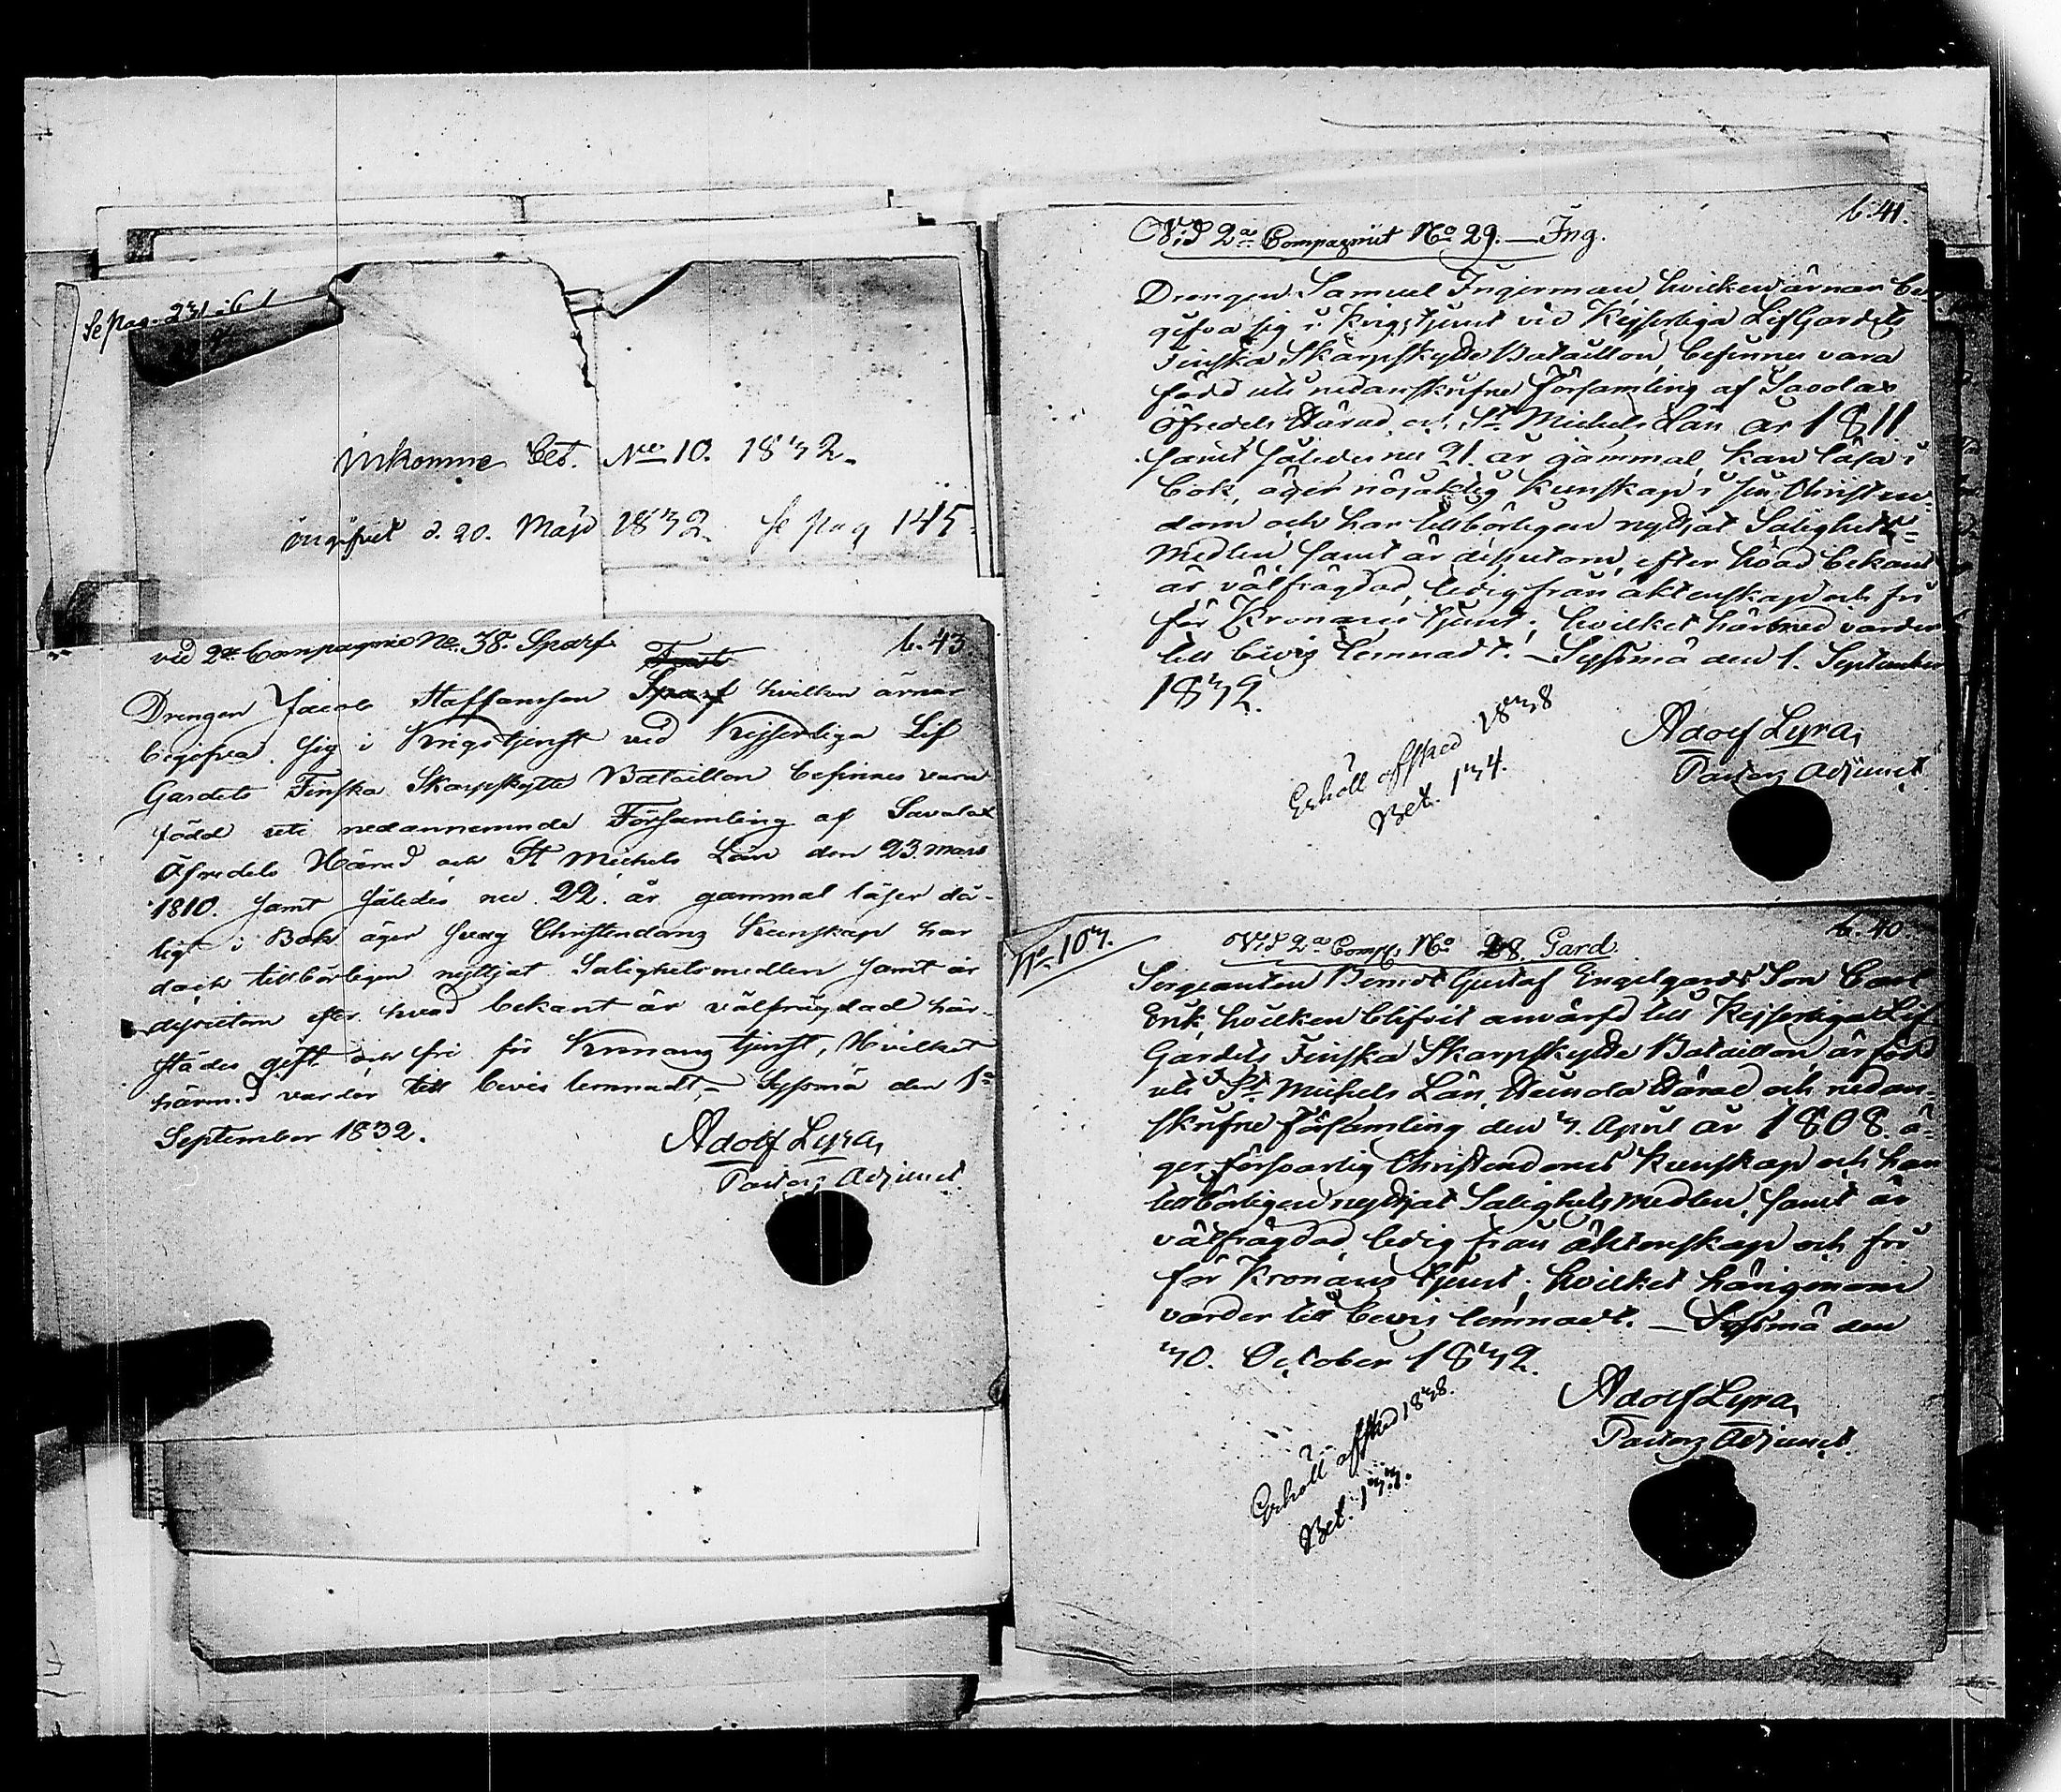 Se Pag. 231. i 6 1
Inkomne Bet. No 10. 1832.
ingifvet d. 20. Maji 1832. Se Pag 145.
vid 2a Compagnie No. 38. Sparf
b. 43
Drengen Jacob Staffansson Sparf hvilken ärnar
begifva sig i Krigstjenst ved Kejserliga Lif
Gardets Finska Skarpskytte Bataillon befinnes vara
född uti nedannemnde Församling af Savolax
Öfredels Härad och St Michels Län den 23. Mars
1810. samt således nu 22. år gammal läser då-
ligt i Bok äger svag Christendoms Kunskap har
dock tillbörligen nyttjat Salighetsmedlen samt är
dessutom efter hvad bekant är välfrägdad här-
städes gift och fri för Kronans tjenst, Hvilket
härmed varder till bevis lemnadt, – Syssmä den 1a
September 1832.
Adolf Lyra,
Pastors Adjunct.
b. 41.
Vid 2a Compagniet No 29. — Ing.
Drengen Samuel Ingerman, hvilken ärnar be-
gifva sig i Krigstjenst vid Kejserliga LifGardets
Finska Skarpskytte Bataillon, befinnes vara
född uti nedanskrifne Församling af Savolax
Öfredels Härad, och St Michels Län år 1811
samt således nu 21. år gammal, kan läsa i
bok, äger nöjaktig kunskap i sin Christen-
dom och har tillbörligen nyttjat Salighets-
medlen, samt är dessutom, efter hvad bekant
är välfrägdad, ledig från äktenskap och fri
för Kronans tjenst; hvilket härmed varder
till bevis lemnadt. — Syssmä den 1. September
1832.
Adolf Lyra,
Pastors Adjunct.
Erhöll affsked 1838
Bet. 134.
No 103.
b. 40.
Vid 2a Comp. No 28. Gard.
Sergeanten Berndt Gustaf Engelgards Son Carl
Erik, hvilken blifvit anvärfd till Kejserliga Lif
Gardets Finska Skarpskytte Bataillon, är född
uti St Michels Län, Heinola Härad och nedan-
skrifne Församling den 3. April år 1808. ä-
ger försvarlig Christendoms kunskap och har
tillbörligen nyttjat Salighetsmedlen, samt är
välfrägdad, ledig från äktenskap och fri
för Kronans tjenst; hvilket härigenom
varder till bevis lemnadt. — Syssmä den
30. October 1832.
Adolf Lyra,
Pastors Adjunct.
Erhöll affsked 1838.
Bet. 133.